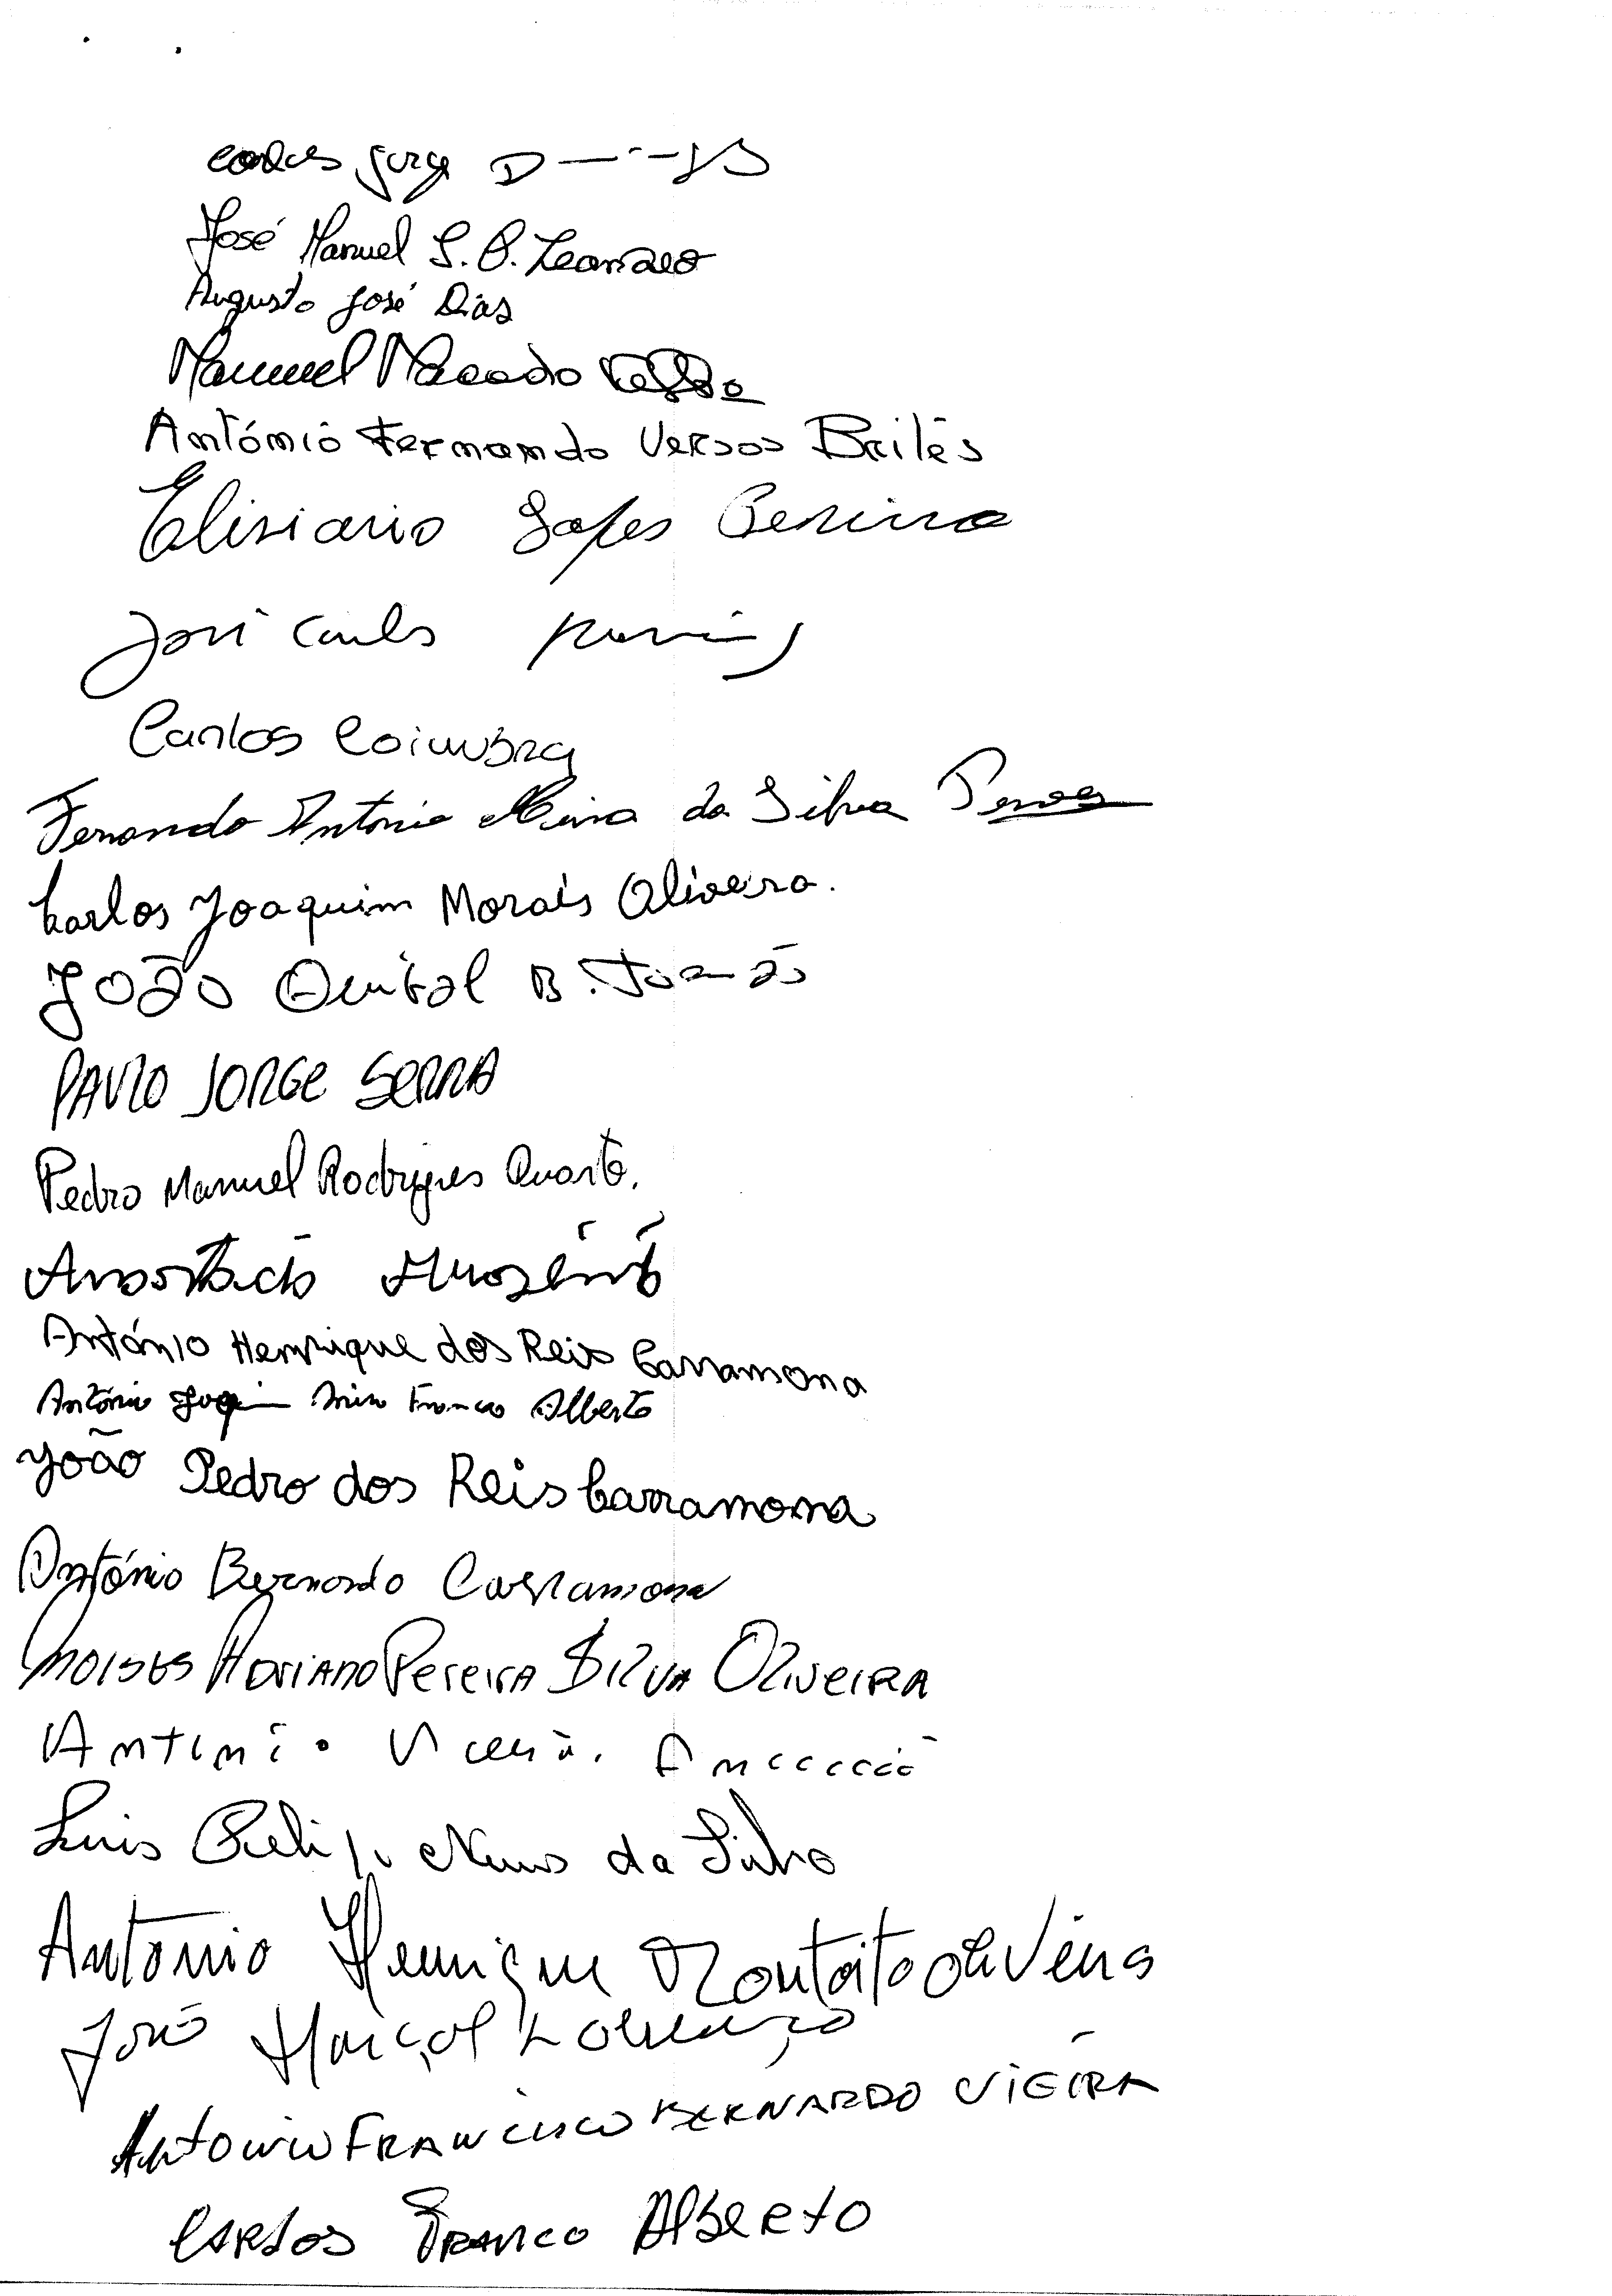 Carlos Jorge
José Manuel S. O. Leonardo
Augusto José Dias
Manuel Macedo
António Fernando Versos Brilês
Elisiario Lopes Pereira
José Carlos
Carlos Coimbra
Fernando António da Silva
Carlos Joaquim Morais Oliveira.
João Quital B. Tomás
PAULO JORGE SERRA
Pedro Manuel Rodrigues Duarte.
António Henrique dos Reis Carramona
António Franco Alberto
João Pedro dos Reis Carramona
António Bernardo Carramona
MOISES ADRIANO PEREIRA SILVA OLIVEIRA
António
Luis Nunes da Silva
António Henrique Oliveira
José Marçal Lourenço
ANTONIO FRANCISCO BERNARDO VIEIRA
CARLOS FRANCO ALBERTO